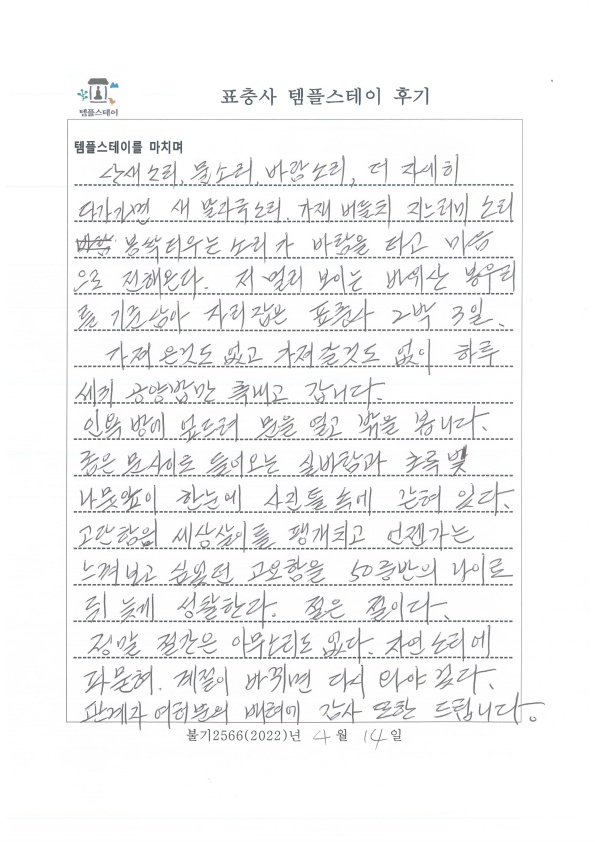 템플스테이
표충사 템플스테이 후기
템플스테이를 마치며
산새소리, 물소리, 바람소리, 더 자세히
다가가면 새 발자국소리, 가재 버들치 지느러미 소리
봉싹 티우는 소리가 바람을 타고 마음
으로 전해온다. 저 멀리 보이는 바위산 봉우리
를 기준삼아 자리잡은 표충사 2박 3일.
가져온것도 없고 가져갈것도 없이 하루
세끼 공양밥만 축내고 갑니다.
방에 엎드려 문을 열고 밖을 봅니다.
좁은 문사이로 들어오는 실바람과 초록빛
나뭇잎이 한눈에 사진틀 속에 갇혀 있다.
고단함의 세상살이를 팽개치고 언젠가는
느껴보고 싶었던 고요함을 50중반의 나이로
뒤 늦게 성찰한다. 절은 절이다.
정말 절간은 아무소리도 없다. 자연소리에
파묻혀. 계절이 바뀌면 다시 와야 겠다.
관계자 여러분의 배려에 감사 또한 드립니다.
불기2566(2022)년 4월 14일